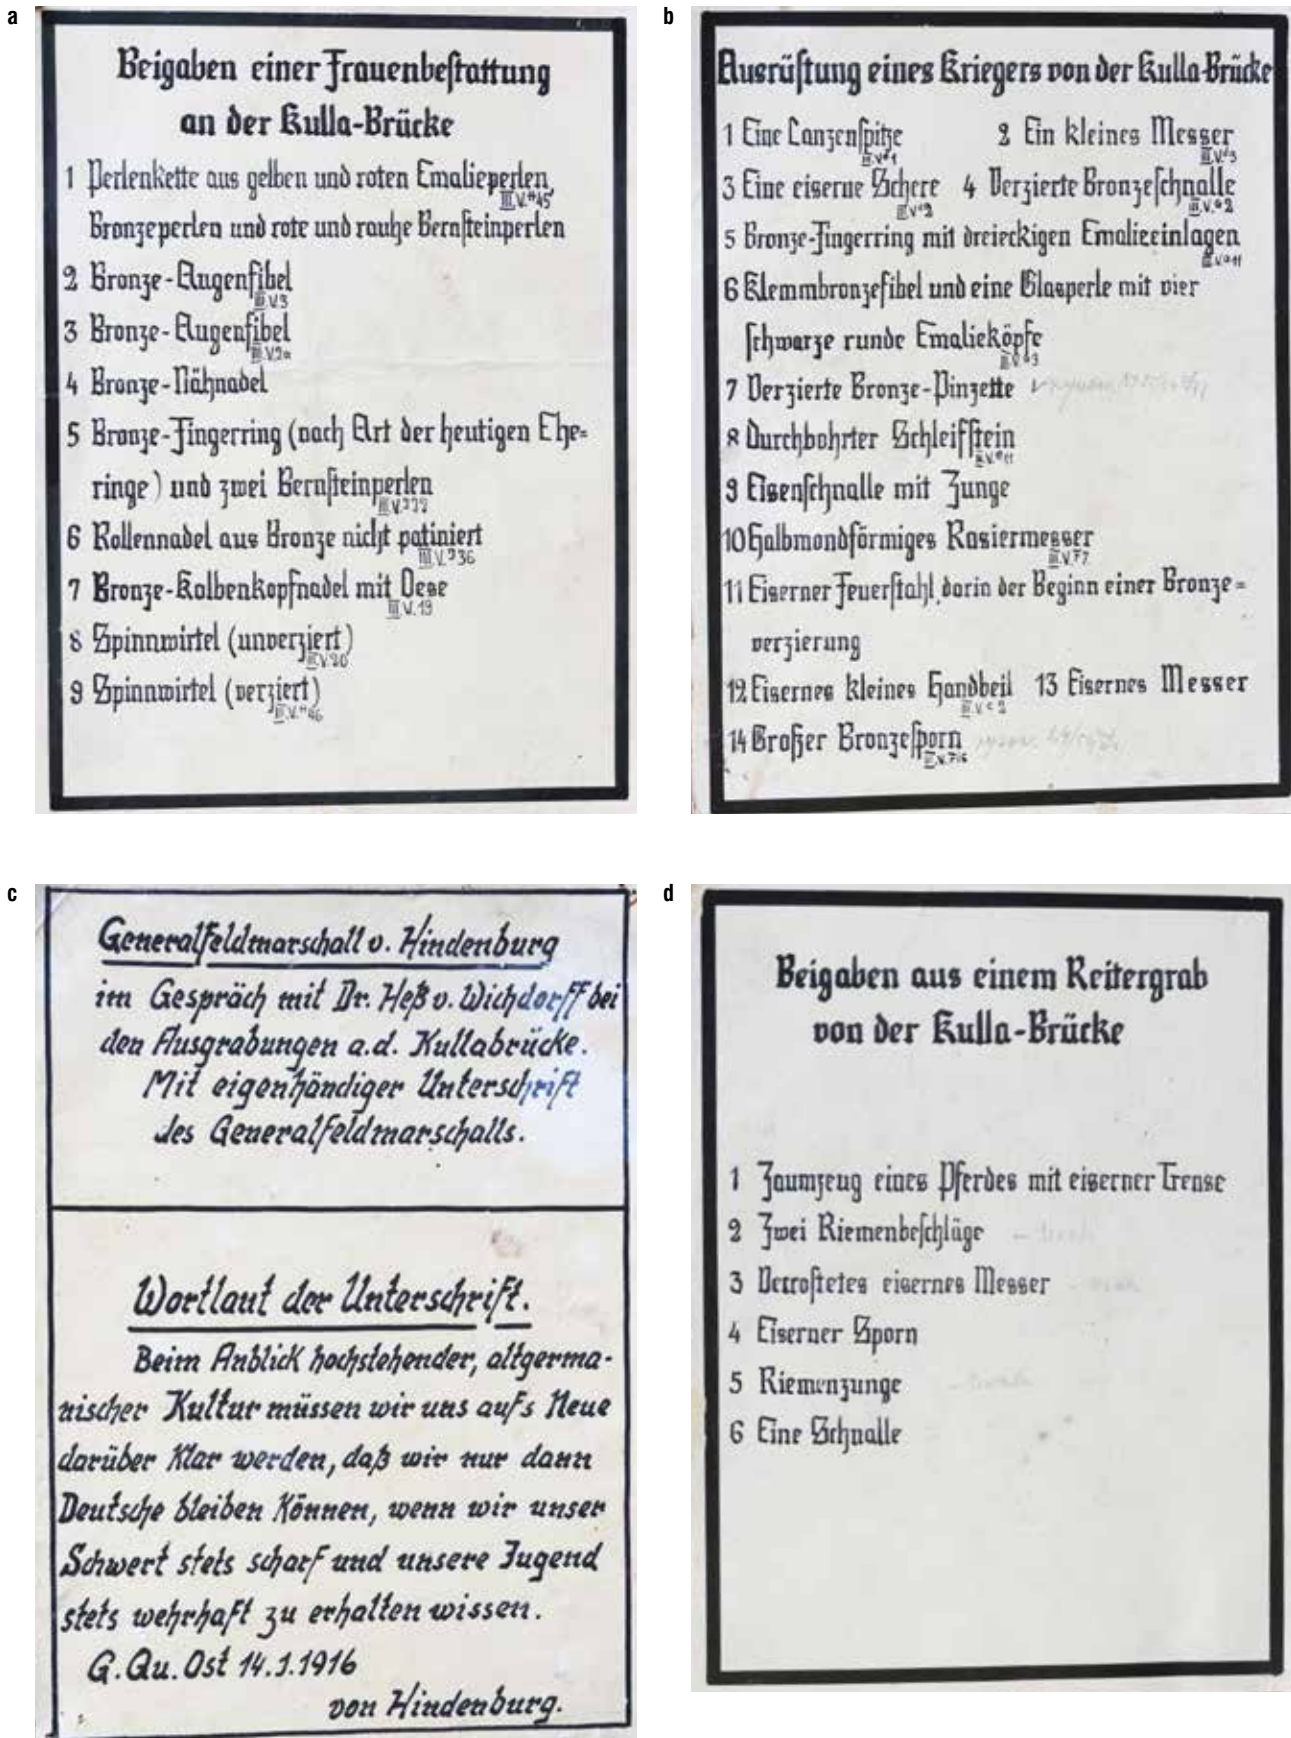 a
Beigaben einer Frauenbestattung
an der Kulla-Brücke
1 Perlenkette aus gelben und roten Emalieperlen,
III.V.a45
Bronzeperlen und rote und rauhe Bernsteinperlen
2 Bronze-Augenfibel
III.V.3
3 Bronze-Augenfibel
III.V.2a
4 Bronze-Nähnadel
5 Bronze-Fingerring (nach Art der heutigen Ehe=
ringe) und zwei Bernsteinperlen
6 Rollennadel aus Bronze nicht patiniert
7 Bronze-Kolbenkopfnadel mit Oese
III.V.19
8 Spinnwirtel (unverziert)
III.V.20
9 Spinnwirtel (verziert)
b
Ausrüstung eines Kriegers von der Kulla-Brücke
1 Eine Lanzenspitze 2 Ein kleines Messer
3 Eine eiserne Schere 4 Verzierte Bronzeschnalle
5 Bronze-Fingerring mit dreieckigen Emalieeinlagen
6 Klemmbronzefibel und eine Glasperle mit vier
schwarze runde Emalieköpfe
7 Verzierte Bronze-Pinzette
8 Durchbohrter Schleifstein
9 Eisenschnalle mit Zunge
10 Halbmondförmiges Rasiermesser
11 Eiserner Feuerstahl darin der Beginn einer Bronze=
verzierung
12 Eisernes kleines Handbeil 13 Eisernes Messer
14 Großer Bronzesporn
c
Generalfeldmarschall v. Hindenburg
im Gespräch mit Dr. Heß v. Wichdorff bei
den Ausgrabungen a.d. Kullabrücke.
Mit eigenhändiger Unterschrift
des Generalfeldmarschalls.
Wortlaut der Unterschrift.
Beim Anblick hochstehender, altgerma-
nischer Kultur müssen wir uns aufs Neue
darüber klar werden, daß wir nur dann
Deutsche bleiben können, wenn wir unser
Schwert stets scharf und unsere Jugend
stets wehrhaft zu erhalten wissen.
G. Qu. Ost 14.1.1916
von Hindenburg.
d
Beigaben aus einem Reitergrab
von der Kulla-Brücke
1 Zaumzeug eines Pferdes mit eiserner Trense
2 Zwei Riemenbeschläge
3 Verrostetes eisernes Messer
4 Eiserner Sporn
5 Riemenzunge
6 Eine Schnalle